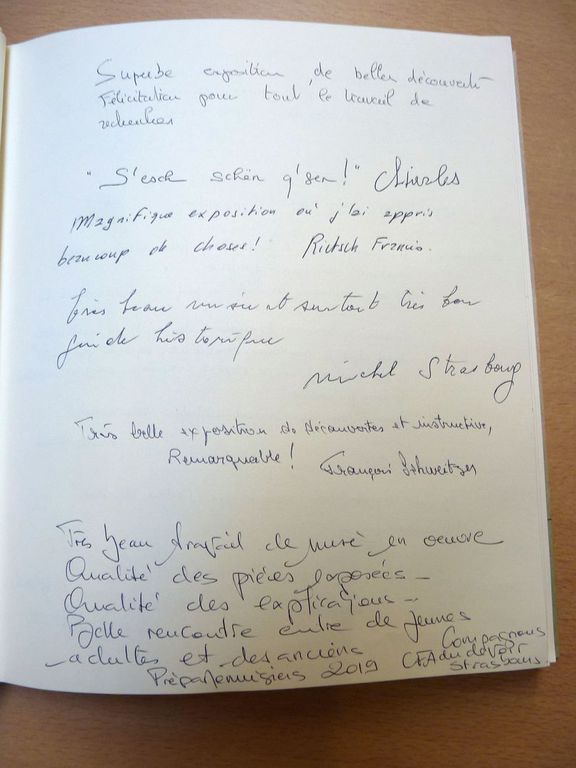 Superbe exposition, de belles découvertes
Félicitation pour tout le travail de
recherches
"S'esch schën g'sen!" Charles
Magnifique exposition où j'ai appris
beaucoup de choses! Rietsch Francis.
très beau musée et surtout très bon
guide historique
Michel Strasbourg
Très belle exposition de découvertes et instructive,
Remarquable! François Schweitzer
Très beau travail de mise en oeuvre
Qualité des pièces exposées -
Qualité des explications -
Belle rencontre entre de jeunes
adultes et des anciens
Compagnons
Prépa Menuisiers 2019 CFA du devoir
Strasbourg